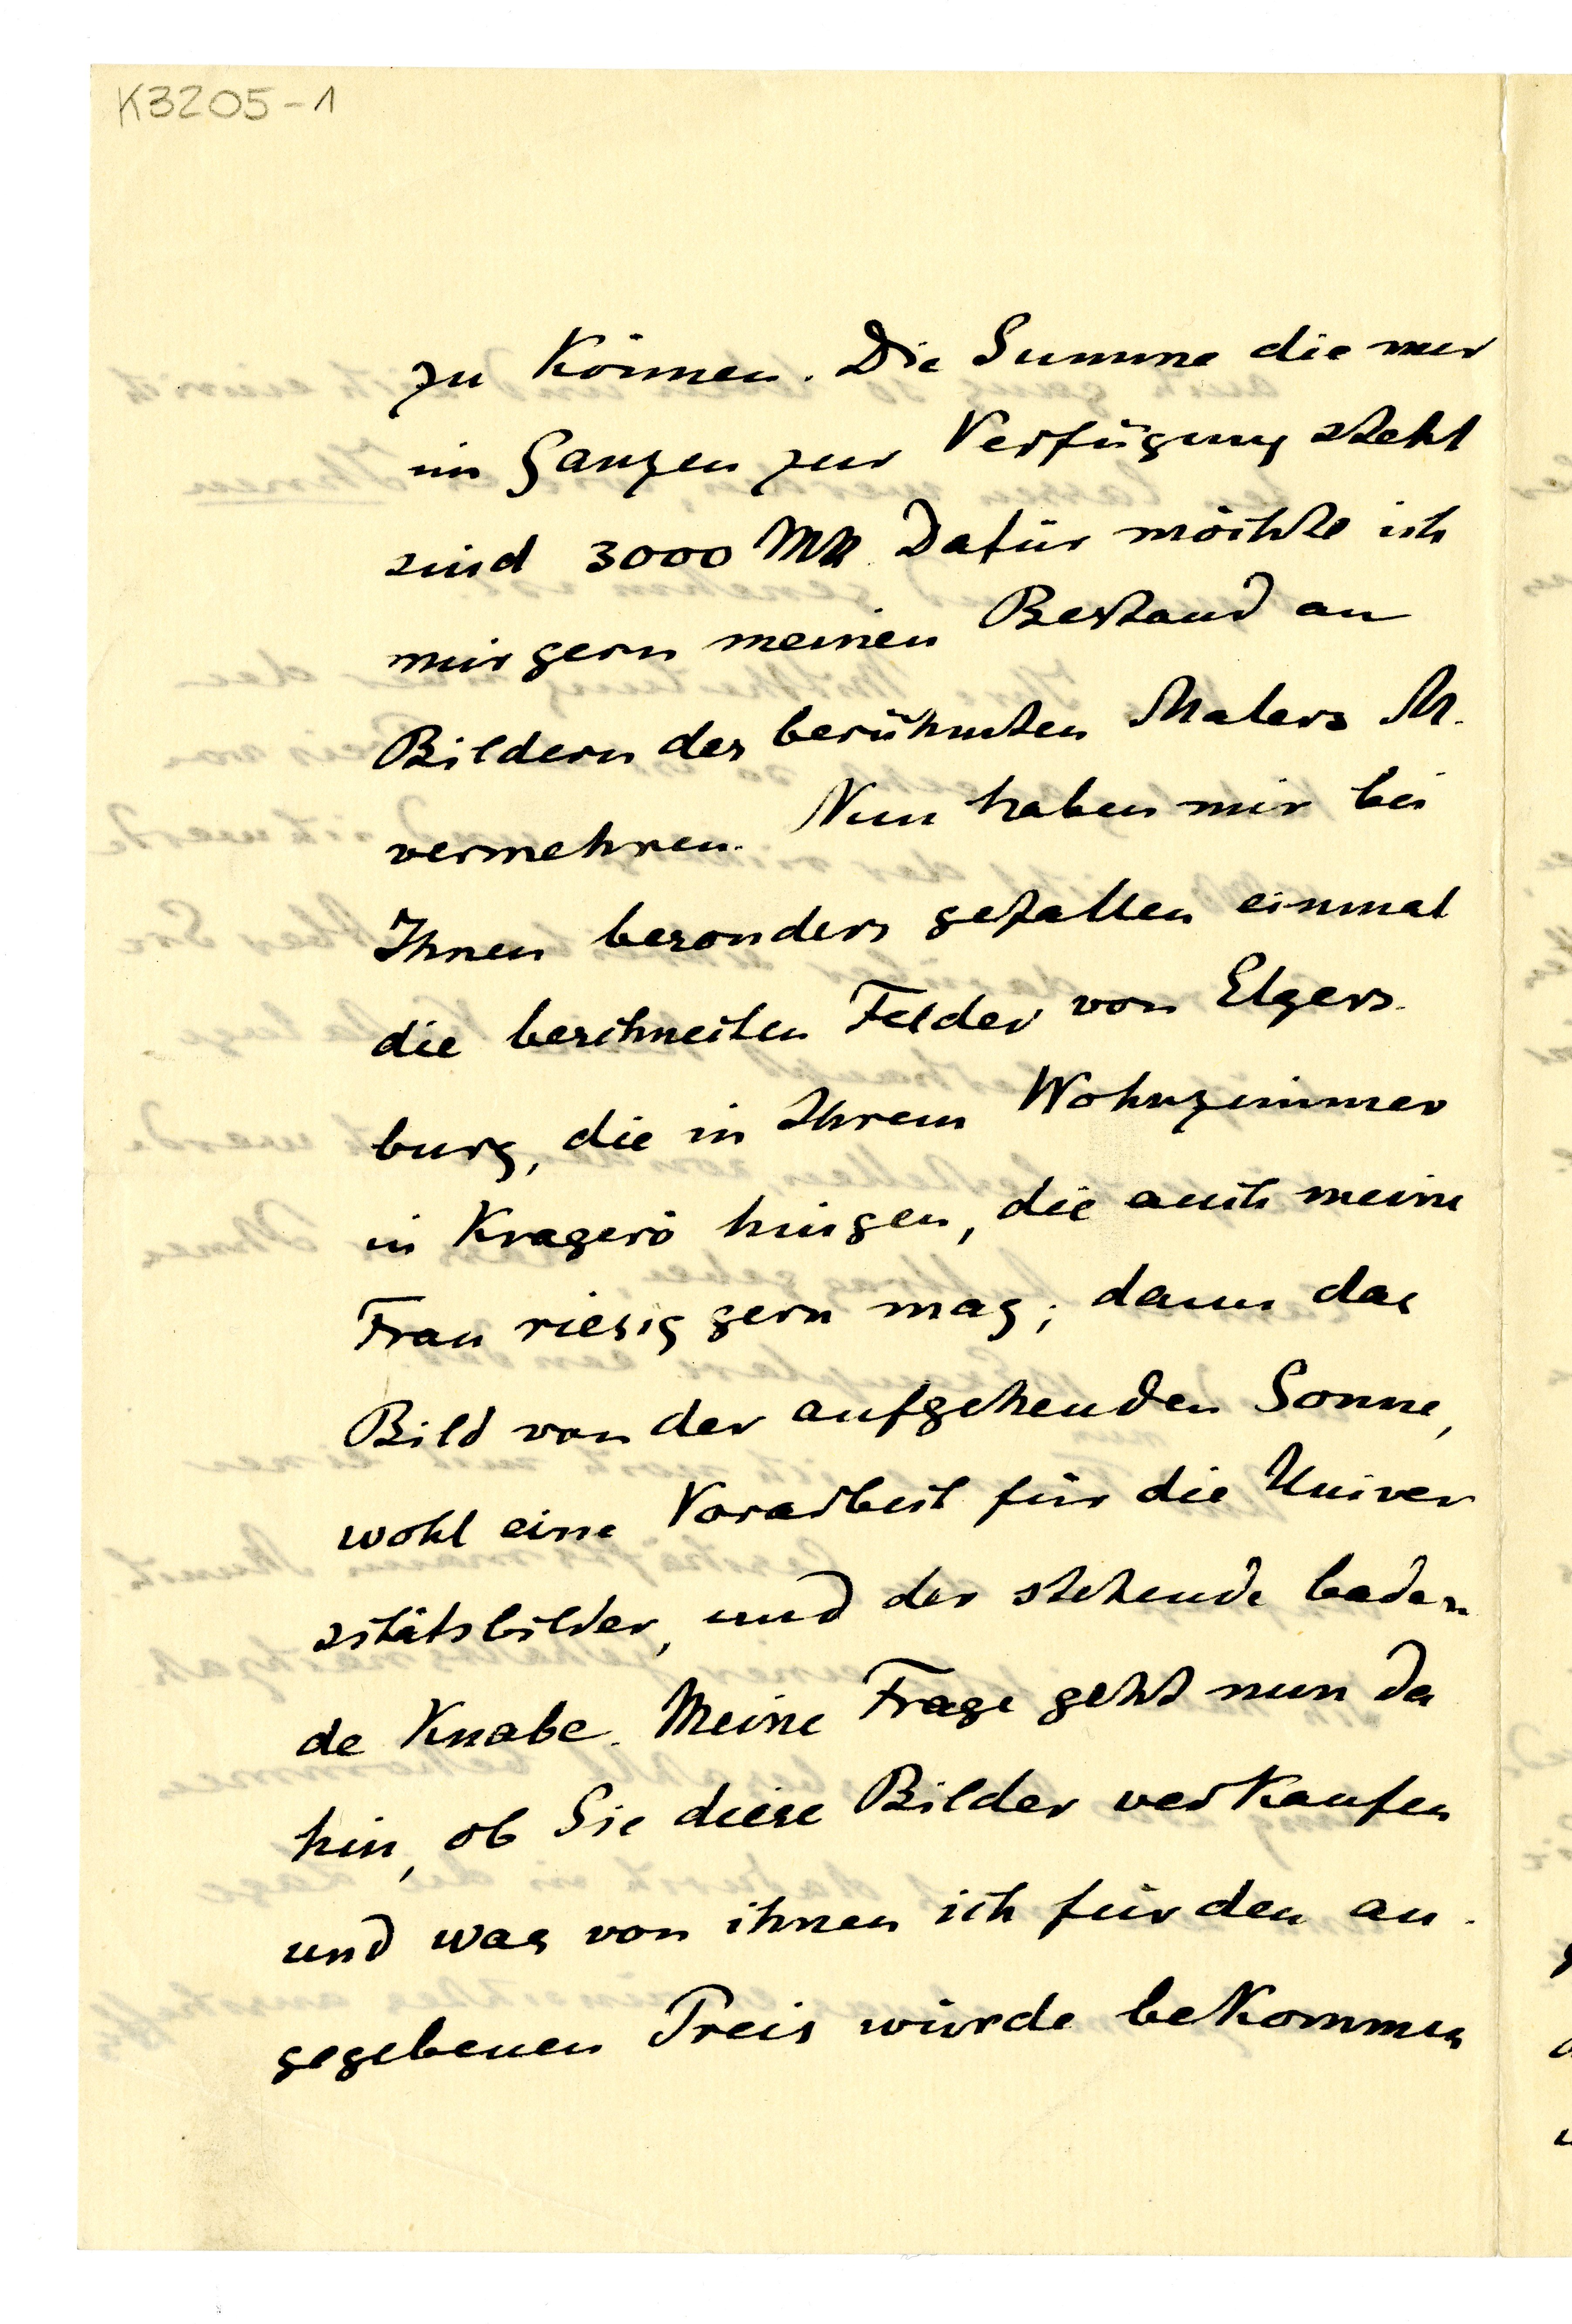 K3205-1
zu können. Die Summe die mir
im Ganzen zur Verfügung steht
sind 3000 Mk. Dafür möchte ich
mir gern meinen Bestand an
Bildern des berühmten Malers M.
vermehren. Nun haben mir bei
Ihnen besonders gefallen einmal
die beschneiten Felder von Elgers-
burg, die in Ihrem Wohnzimmer
in Kragerö hingen, die auch meine
Frau riesig gern mag; dann das
Bild von der aufgehenden Sonne,
wohl eine Vorarbeit für die Univer
sitätsbilder, und der stehende baden
de Knabe. Meine Frage geht nun da
hin, ob Sie diese Bilder verkaufen
und was von ihnen ich für den an-
gegebenen Preis würde bekommen